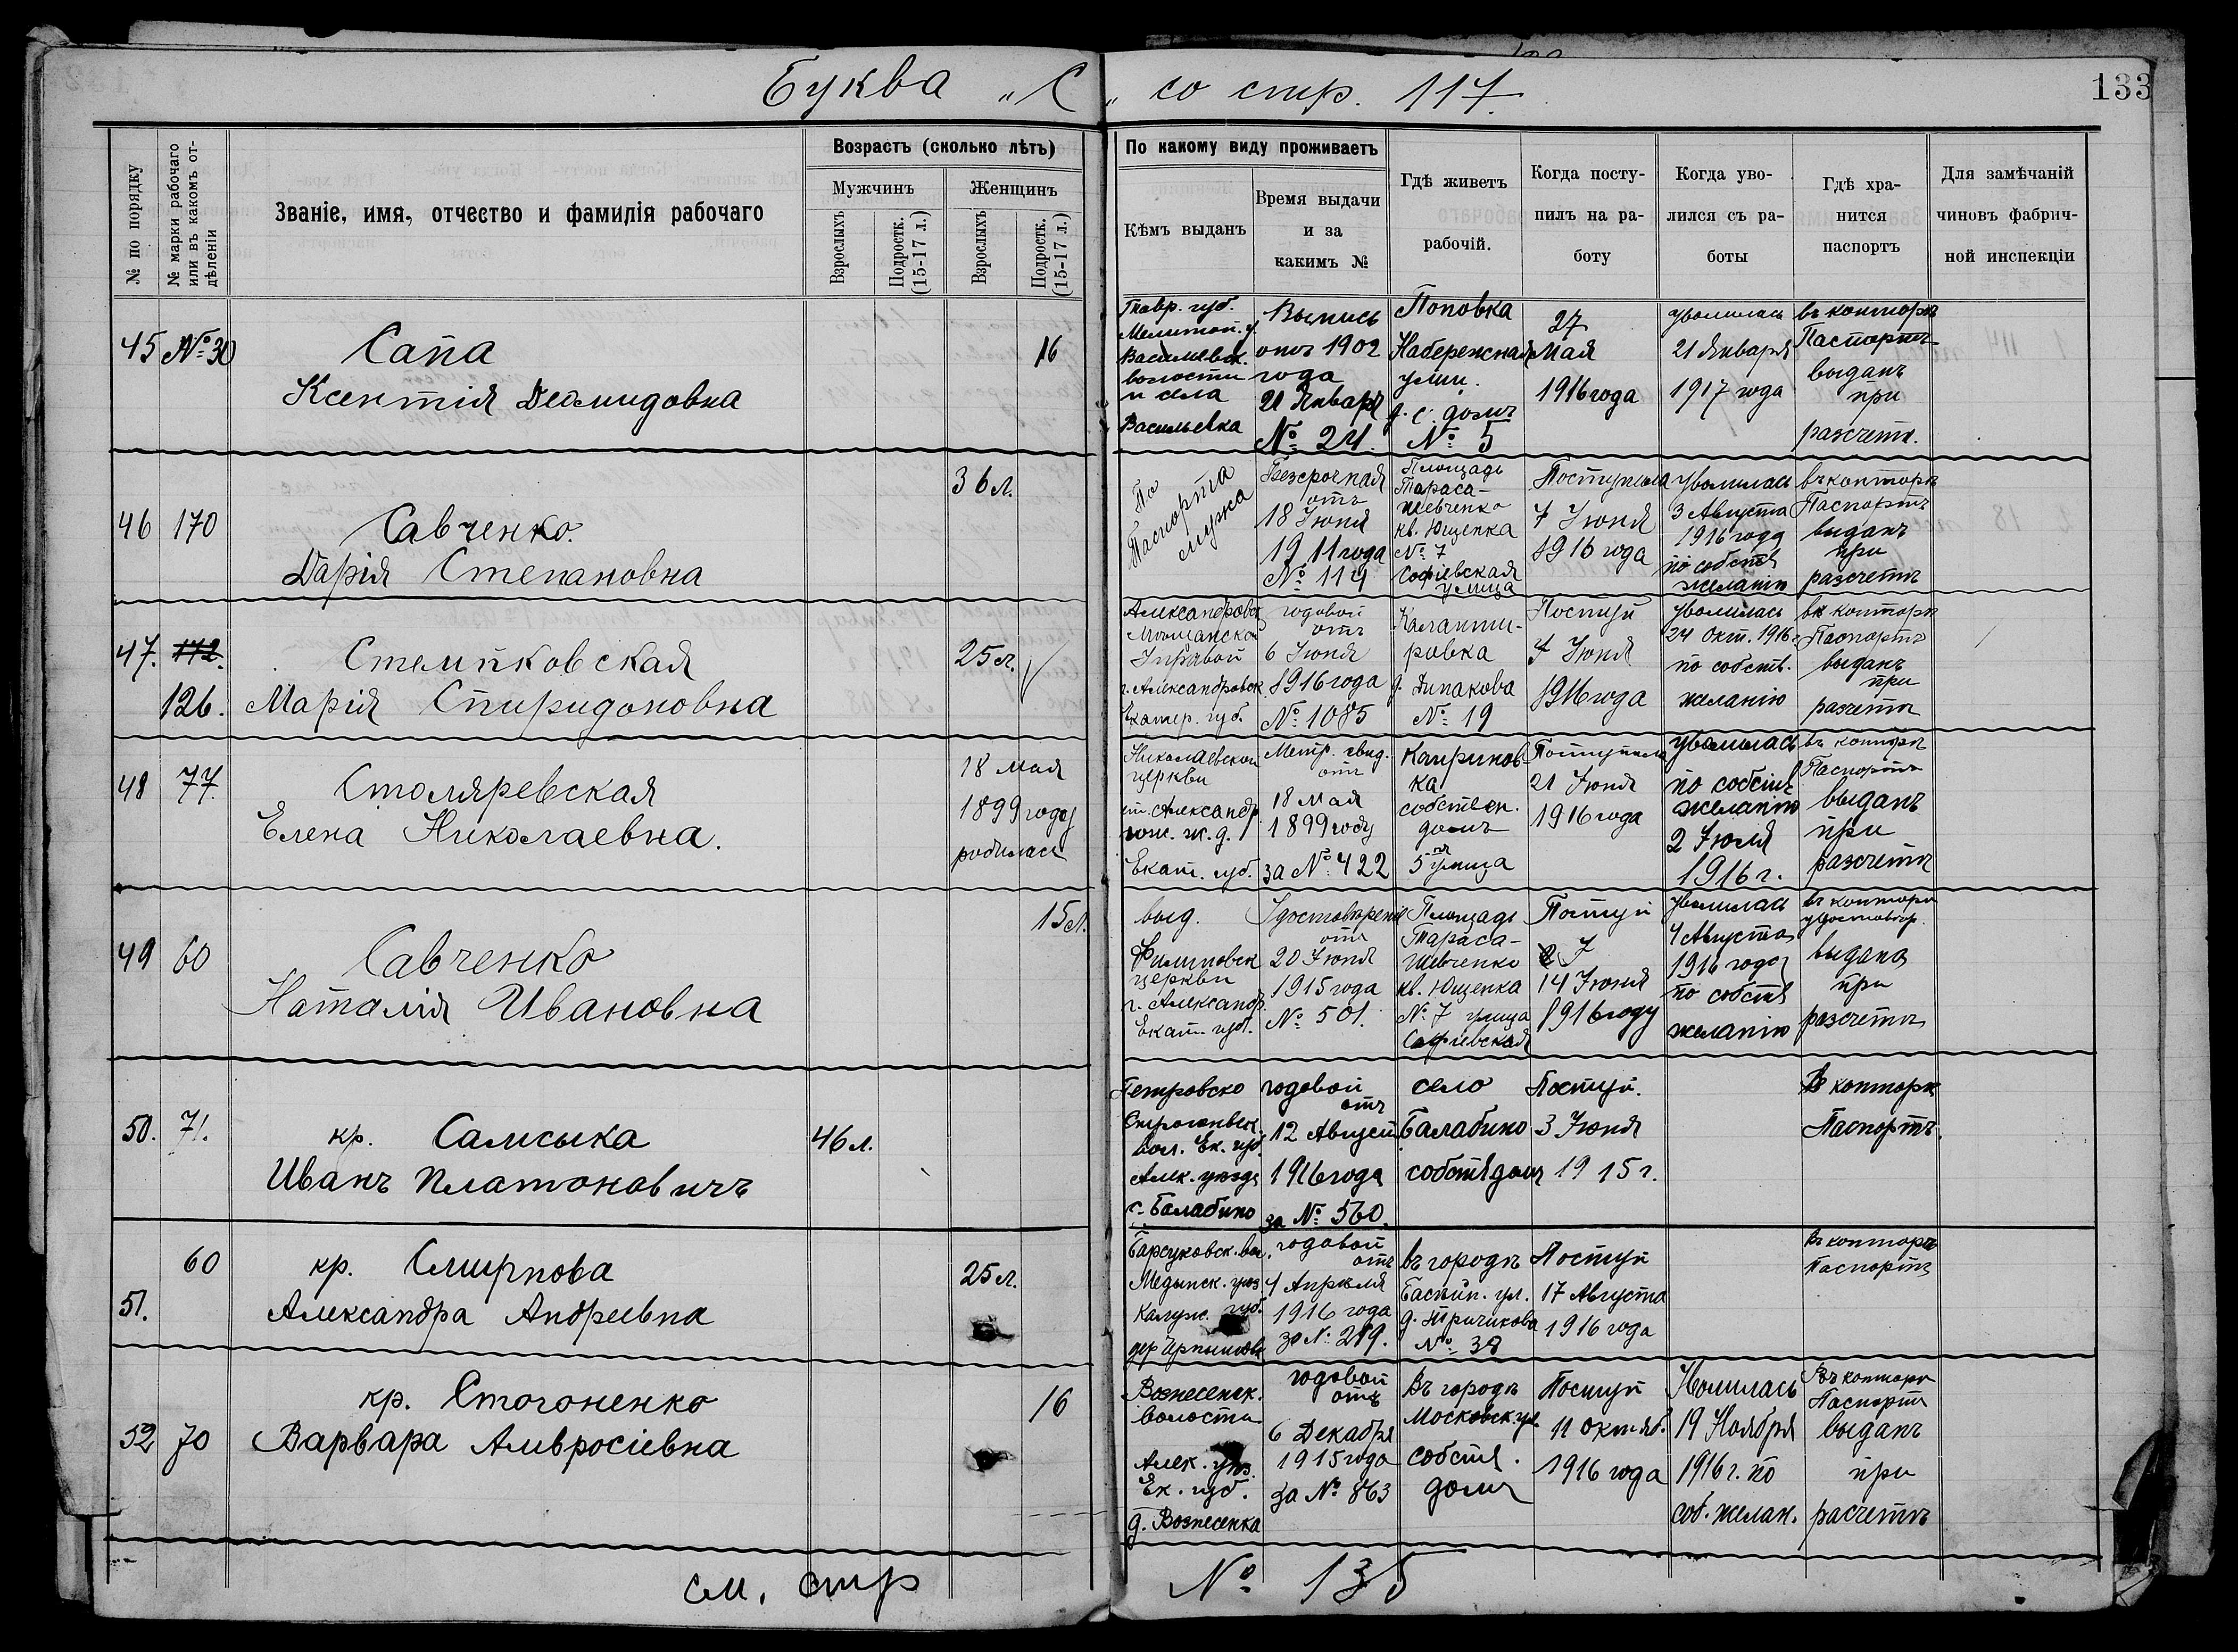 Буква „С„ со стр. 117.
133
№ по порядку
№ марки рабочаго или въ какомъ от-дѣленіи
Званіе, имя, отчество и фамилія рабочаго
Возрастъ (сколько лѣтъ)
Мужчинъ
Женщинъ
Взрослыхъ
Подростк. (15-17 л.)
Взрослыхъ
Подростк. (15-17 л.)
По какому виду проживаетъ
Кѣмъ выданъ
Время выдачи
и за
какимъ №
Гдѣ живетъ
рабочій.
Когда посту-
пилъ на ра-
боту
Когда уво-
лился съ ра-
боты
Гдѣ хра-
нится
паспортъ
Для замѣчаній
чиновъ фабрич-
ной инспекціи
45 № 30
Сапа
Ксентія Демидовна
16
Тавр. губ.
Мелитоп. у.
Васильевск.
волости
и села
Васильевка
Выпись
отъ 1902
года
21 Января
№ 24.
Поповка
Набережная
улиц.
д. с. домъ
№ 5
27
Мая
1916 года
уволилась
21 Января
1917 года
въ конторѣ
Паспортъ
выданъ
при
разсчетѣ.
46 170
Савченко.
Дарія Степановна
36 л.
По
Паспорта
мужа
Безсрочная
отъ
18 Іюня
1911 года
№ 114
Площадь
Тараса-
Шевченко
кв. Ющенка
№ 7
Софіевская
улица
Поступила
7 Іюня
1916 года
уволилась
3 Августа
1916 года
по собств
желанію
въ конторѣ
Паспортъ
выданъ
при
разсчетѣ
47. 172.
126.
Стемпковская
Марія Спиридоновна
25 л.
Александровск
Мѣщанской
Управой
г. Александровск
Екатер. губ.
годовой
отъ
6 Іюня
1916 года
№ 1085
Каланты-
ровка
д. Липакова
№ 19
Поступ
7 Іюня
1916 года
уволилась
24 Окт. 1916 г.
по собств.
желанію
въ конторѣ
Паспортъ
выданъ
при
разчетѣ
48 77.
Столяревская
Елена Николаевна.
18 мая
1899 года
родилась
Николаевской
церкви
ст. Александр.
юж. ж. д.
Екат. губ.
Метр. свид.
отъ
18 Мая
1899 году
за № 422
Каиринов-
ка
собствен.
домъ
5ая улица
Поступила
21 Іюня
1916 года
уволилась
по собств
желанію
2 Іюля
1916 г.
въ конторѣ
Паспортъ
выданъ
при
разсчетѣ
49 60
Савченко
Наталія Ивановна
15 л.
выд.
Филиповск
церкви
г. Александр.
Екат. губ.
Удостовѣреніе
отъ
20 Іюня
1915 года
№ 501.
Площадь
Тараса-
Шевченко
кв. Ющенка
№ 7 улица
Софіевская
Поступ
14 Іюня
1916 году
уволилась
4 Августа
1916 года
по собств
желанію
въ конторѣ
удостовѣр.
выдана
при
разсчетѣ
50. 71.
кр. Самсыка
Иванъ Платоновичъ
46 л.
Петровско
вол. Ек. губ.
Алек. уѣзда
с. Балабино
годовой
отъ
12 Август
1916 года
за № 560.
село
Балабино
собств домъ
Поступ.
3 Іюня
1915 г.
Въ конторѣ
Паспортъ.
51. 60
кр. Смирнова
Александра Андреевна
25 л.
Барсуковск. вол.
Медынск. уѣз
Калуж. губ.
годовой
отъ
4 Апрѣля
1916 года
за № 219.
въ городѣ
Баспйн. ул.
№ 38
Поступ
17 Августа
1916 года
Въ конторѣ
Паспортъ
52 70
кр. Стогоненко
Варвара Амвросіевна
16
Вознесенск.
волости
Алек. уѣз.
Ек. губ.
д. Вознесенка
годовой
отъ
6 Декабря
1915 года
за № 863
Въ городѣ
Московск. ул.
собств.
домъ
Поступ
11 Октяб.
1916 года
Уволилась
19 Ноября
1916 г. по
соб. желан.
Въ конторѣ
Паспортъ
выданъ
при
расчетѣ
см. стр № 135